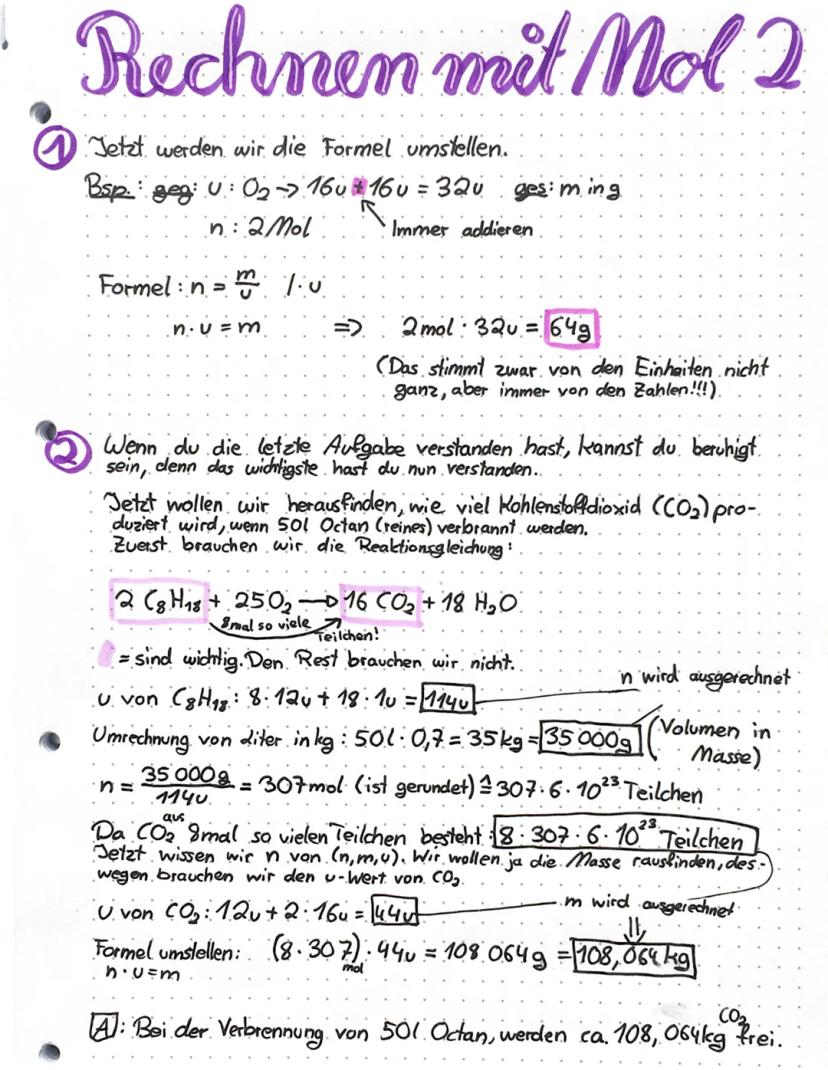 Rechnen mit Mol 2
① Jetzt werden wir die Formel umstellen.
Bsp.: geg: u: O₂ → 16u + 16u = 32u ges: m in g
n: 2Mol Immer addieren
Formel: n = m/u /· u
n · u = m => 2mol · 32u = 64g
(Das stimmt zwar von den Einheiten nicht
ganz, aber immer von den Zahlen!!!)
② Wenn du die letzte Aufgabe verstanden hast, kannst du beruhigt
sein, denn das wichtigste hast du nun verstanden.
Jetzt wollen wir herausfinden, wie viel Kohlenstoffdioxid (CO₂) pro-
duziert wird, wenn 50l Octan (reines) verbrannt werden.
Zuerst brauchen wir die Reaktionsgleichung:
2 C₈H₁₈ + 25O₂ → 16 CO₂ + 18 H₂O
8mal so viele Teilchen!
= sind wichtig. Den Rest brauchen wir nicht.
n wird ausgerechnet
u von C₈H₁₈: 8·12u + 18·1u = 114u
Umrechnung von Liter in kg: 50l · 0,7 = 35kg = 35 000g (Volumen in
Masse)
n = 35 000g/114u = 307mol (ist gerundet) ≙ 307·6·10²³ Teilchen
Da CO₂ aus 8mal so vielen Teilchen besteht: 8·307·6·10²³ Teilchen
Jetzt wissen wir n von (n,m,u). Wir wollen ja die Masse rausfinden, des-
wegen brauchen wir den u-Wert von CO₂
u von CO₂: 12u + 2·16u = 44u m wird ausgerechnet
Formel umstellen: (8·307)mol · 44u = 108 064g = 108,064kg
n·u=m
A: Bei der Verbrennung von 50l Octan, werden ca. 108,064kg CO₂ frei.